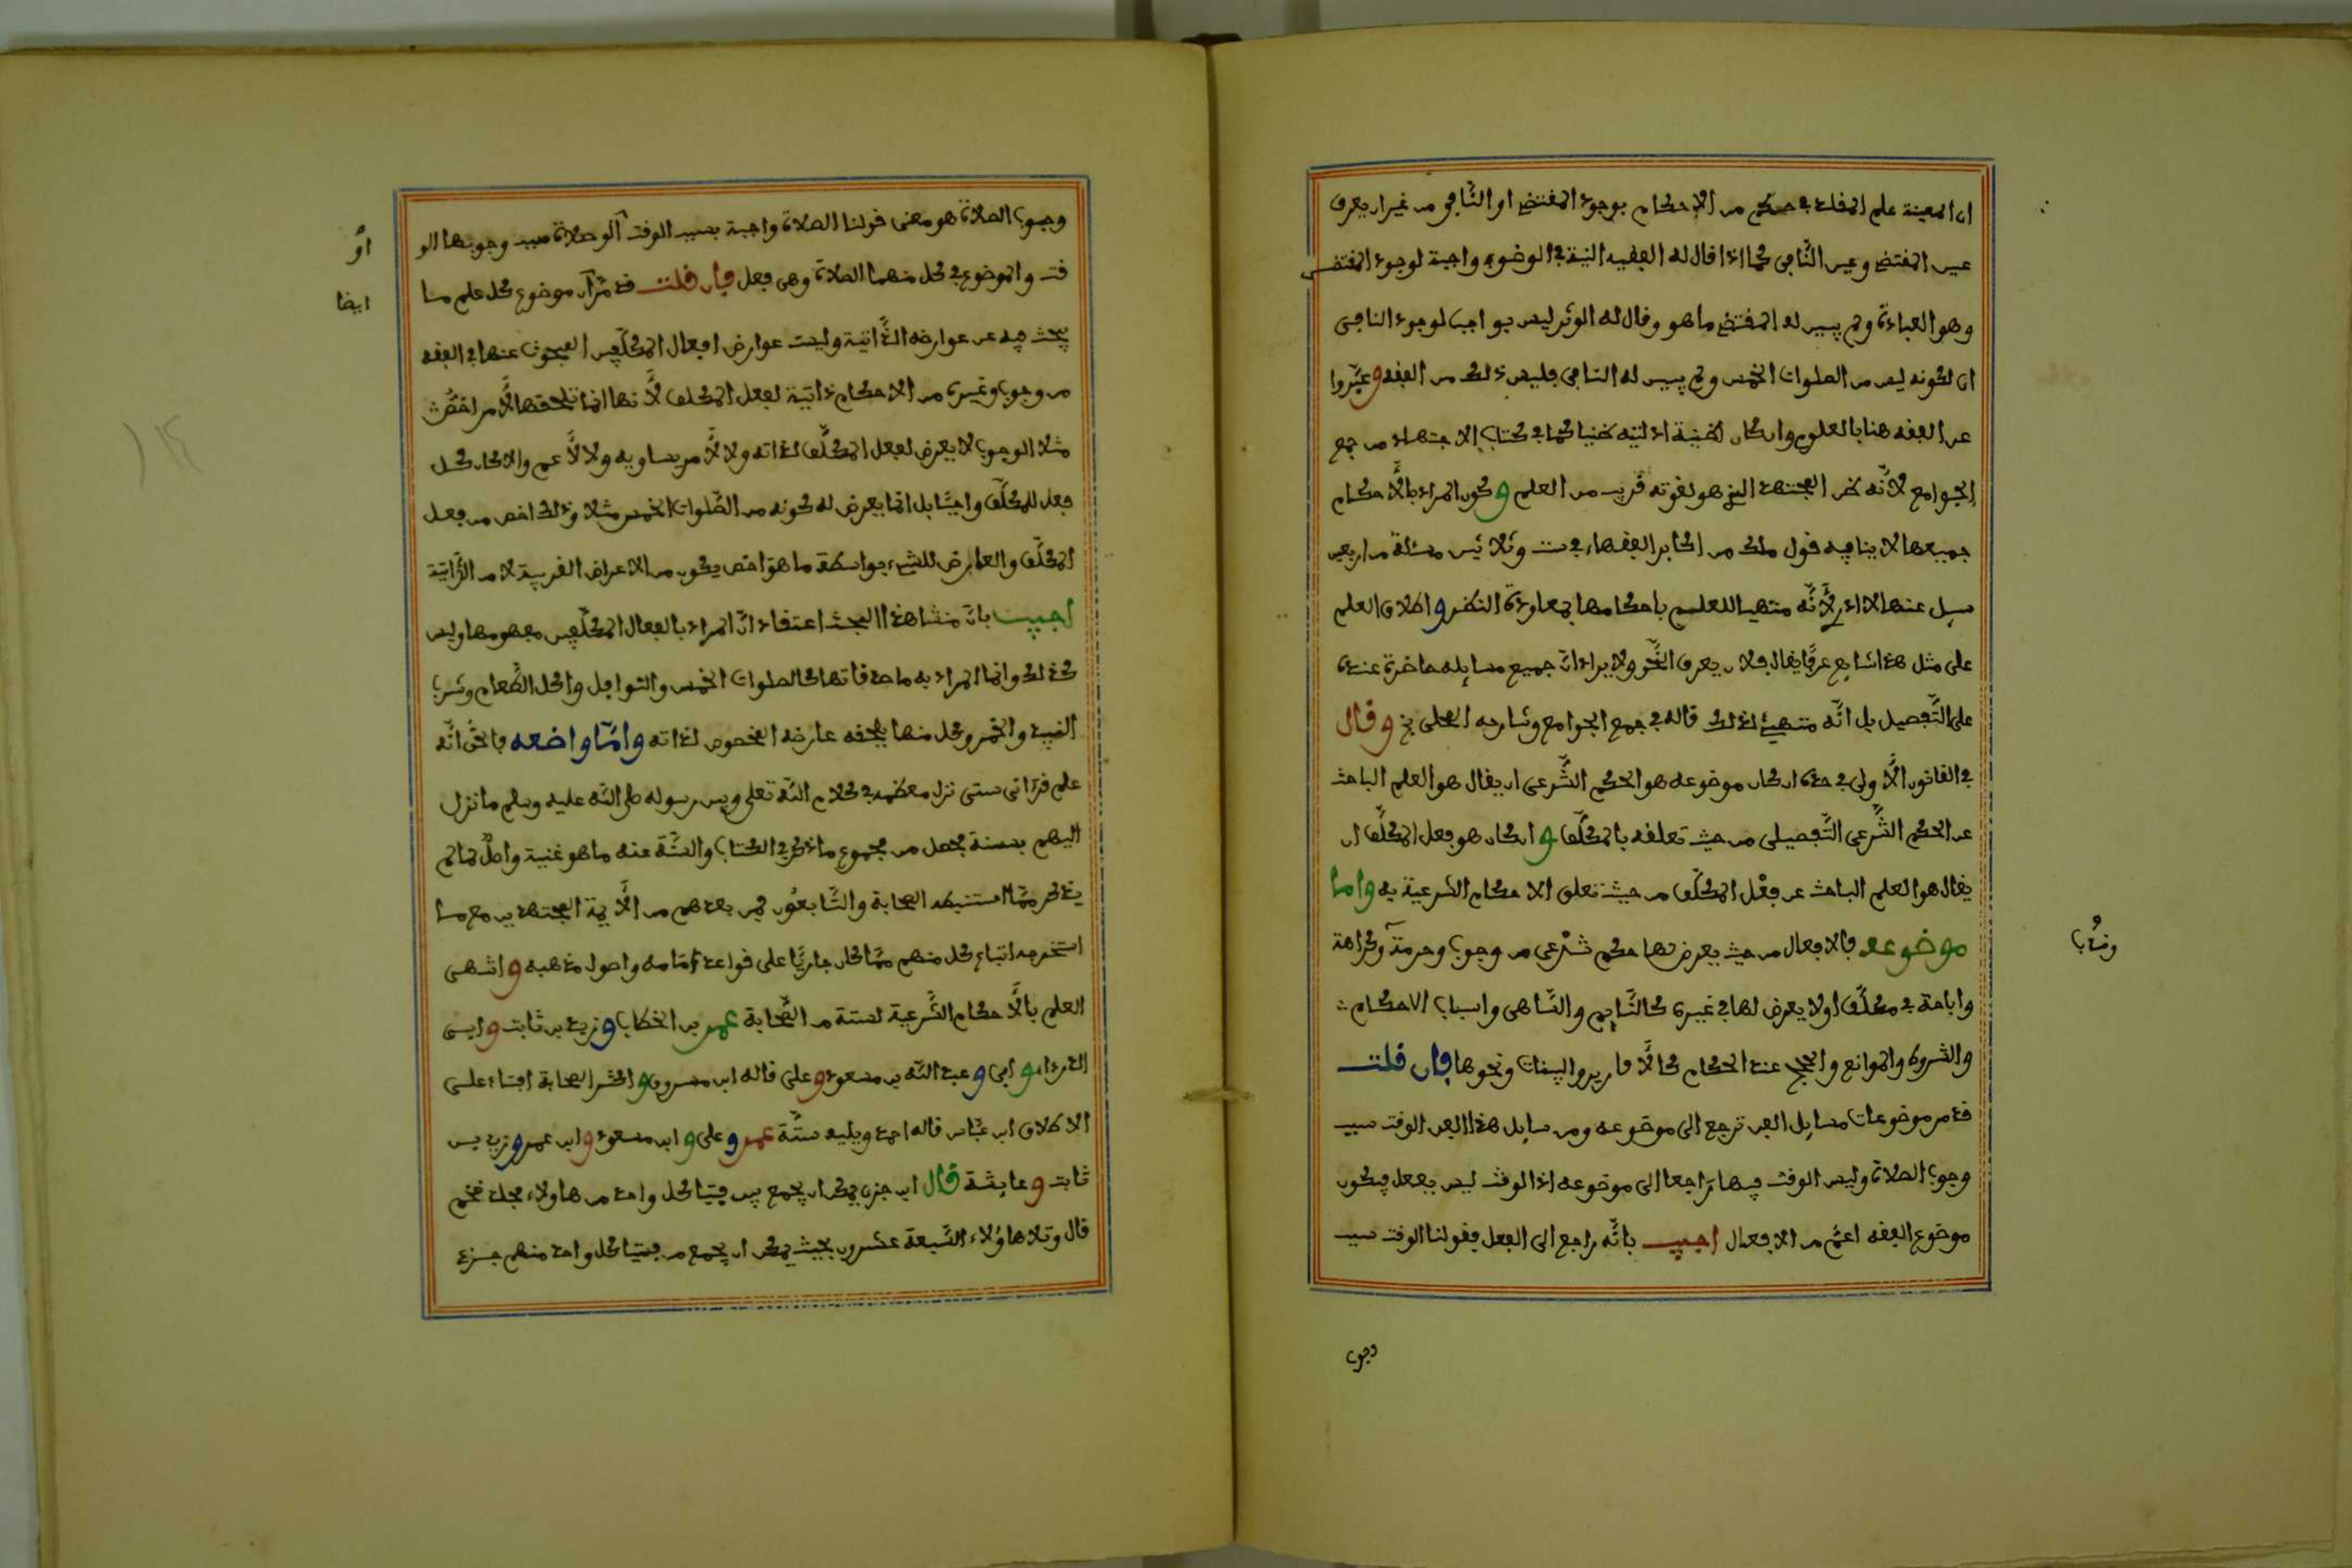 ان المعينة علم المقلد بحكم من الاحكام بوجود المقتضي او النّافي من غير ان يعرف
عين المقتضي وعين النّافي كما اذا قال له الفقيه النية في الوضوء واجبة لوجود المقتضى
وهو العبادة ولم يبين له المقتضي ما هو وقال له الوتر ليس بواجب لوجود النافي
اي لكونه ليس من الصلوات الخمس ولم يبين له النافي فليس ذلك من الفقه وعبّروا
عن الفقه هنا بالعلم وان كان لظنية ادلته ظنيا كما في كتاب الاجتهاد من جمع
الجوامع لانّه ظن المجتهد الذي هو لقوته قريب من العلم وكون المراد بالأحكام
جميعها لا ينافيه قول ملك من اكابر الفقهاء في ست وثلاثين مسئلة من اربعين
سيل عنها لا ادري لأنّه متهيا للعلم باحكامها بمعاودة النظر واطلاق العلم
على مثل هذا شايع عرفا يقال فلان يعرف النّحو ولا يراد انّ جميع مسايله حاضرة عنده
على التّفصيل بل انّه متهيئ لذلك قاله في جمع الجوامع وشارحه المحلي وقال
في القانون الأولى في حده ان كان موضوعه هو الحكم الشّرعي ان يقال هو العلم الباحث
عن الحكم الشّرعي التّفصيلي من حيث تعلقه بالمكلّف وان كان هو فعل المكلّف ان
يقال هو العلم الباحث عن فعْل المكلّف من حيث تعلق الاحكام الشرعية به واما
موضوعه فالافعال من حيث يعرض لها حكم شرْعي من وجوب وحرمة وكراهة
وندب
واباحة في مكلّف او لا يعرض لها في غيره كالنّايم والسّاهي واسباب الاحكام
والشروط والموانع والحجج عند الحكام كالأقارير والبينات ونحوها فان قلت
قد مر موضوعات مسايل الفن ترجع الى موضوعه ومن مسايل هذا الفن الوقت سبب
وجوب الصلاة وليس الوقت فيها راجعا الى موضوعه اذ الوقت ليس بفعل فيكون
موضوع الفقه اعمّ من الافعال اجيب بانّه راجع الى الفعل فقولنا الوقت سبب
وجوب
وجوب الصلاة هو معنى قولنا الصلاة واجبة بسبب الوقت او الصلاة سبب وجوبها الو
أو
قت والموضوع في كل منهما الصلاة وهي فعل فان قلت قد مرّ ان موضوع كل علم ما
ايضا
يبحث فيه عن عوارضه الذّاتية وليست عوارض افعال المكلّفين المبحوث عنها في الفقه
من وجوب وغيره من الاحكام ذاتية لفعل المكلف لأنها انما تلحقها لأمر اخصّ
مثلا الوجوب لا يعرض لفعل المكلّف لذاته ولا لأمر يساويه ولا لأعم والا كان كل
فعل للمكلّف واجبًا بل انما يعرض له كونه من الصّلوات الخمس مثلا وذلك اخص من فعل
المكلّف والعارض للشيء بواسطة ما هو اخص يكون من الاعراض الغريبة لا من الذّاتية
اجيب بان منشا هذا البحث اعتقاد انّ المراد بافعال المكلّفين مفهومها وليس
كذلك وانما المراد به ما صدقاتها كالصلوات الخمس والنوافل واكل الطّعام وشرب
النبيذ والخمر وكل منها يلحقه عارضه المخصوص لذاته وامّا واضعه فالحق انّه
علم قرآني سني نزل معظمه في كلام الله تعلى وبين رسوله صلى الله عليه وسلم ما نزل
اليهم بسنته فحصل من مجموع ما ذكر في الكتاب والسّنّة منه ما هو غنية واصل لما لم
يذكر ممّا استنبطه الصحابة والتّابعون فمن بعدهم من الأيمة المجتهدين مع ما
استخرجه اتباع كل منهم ممّا كان جاريًا على قواعد إمامه واصول مذهبه وانتهى
العلم بالأحكام الشّرعية لستة من الصّحابة عمر بن الخطاب وزيد بن ثابت وابي
الدرداء وابي وعبد الله بن مسعود وعلي قاله ابن مسروق واكثر الصحابة افتاء على
الاطلاق ابن عبّاس قاله احمد ويليه ستّة عمر وعلى وابن مسعود وابن عمر وزيد بن
ثابت وعايشة قال ابن حزم يمكن ان يجمع من فتيا كل واحد من هاولاء مجلد ضخم
قال وتلا هاؤلاء السّبعة عشرون بحيث يمكن ان يجمع من فتيا كل واحد منهم جزء